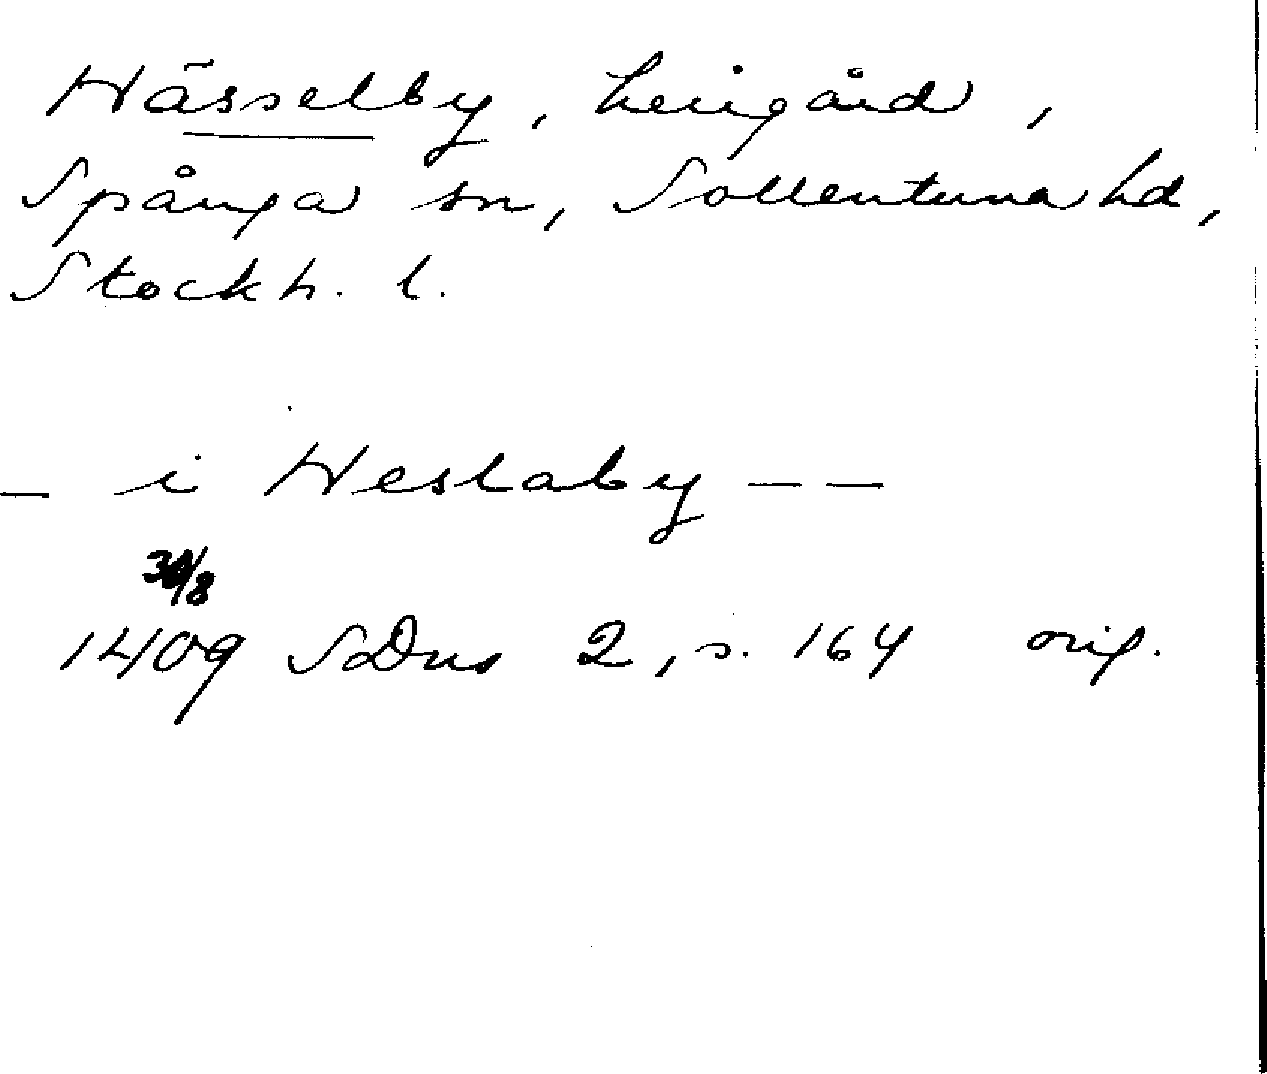 Hässelby, herrgård,
Spånga sn, Sollentuna hd,
Stockh. l.
- i Heslaby - -
30/8
1409 SDns 2, s. 164 orig.